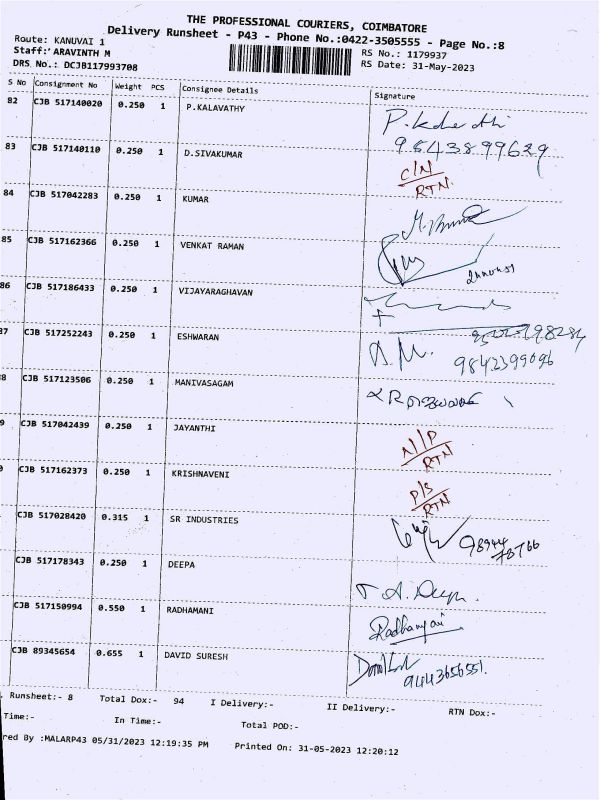 THE PROFESSIONAL COURIERS, COIMBATORE
Delivery Runsheet - P43 - Phone No.:0422-3505555 - Page No.:8
Route: KANUVAI 1 RS No.: 1179937
Staff: ARAVINTH M RS Date: 31-May-2023
DRS No.: DCJB117993708
S No Consignment No Weight PCS Consignee Details Signature
82 CJB 517140020 0.250 1 P.KALAVATHY
9843899629
83 CJB 517140110 0.250 1 D.SIVAKUMAR C/N
RTN
84 CJB 517042283 0.250 1 KUMAR
85 CJB 517162366 0.250 1 VENKAT RAMAN
86 CJB 517186433 0.250 1 VIJAYARAGHAVAN
87 CJB 517252243 0.250 1 ESHWARAN
9842399096
8 CJB 517123506 0.250 1 MANIVASAGAM
9 CJB 517042439 0.250 1 JAYANTHI N/P
RTN
CJB 517162373 0.250 1 KRISHNAVENI P/S
RTN
CJB 517028420 0.315 1 SR INDUSTRIES 98944
78766
CJB 517178343 0.250 1 DEEPA
CJB 517150994 0.550 1 RADHAMANI Radhamani
CJB 89345654 0.655 1 DAVID SURESH
9443656551.
Runsheet:- 8 Total Dox:- 94 I Delivery:- II Delivery:- RTN Dox:-
Time:- In Time:- Total POD:-
red By :MALARP43 05/31/2023 12:19:35 PM Printed On: 31-05-2023 12:20:12